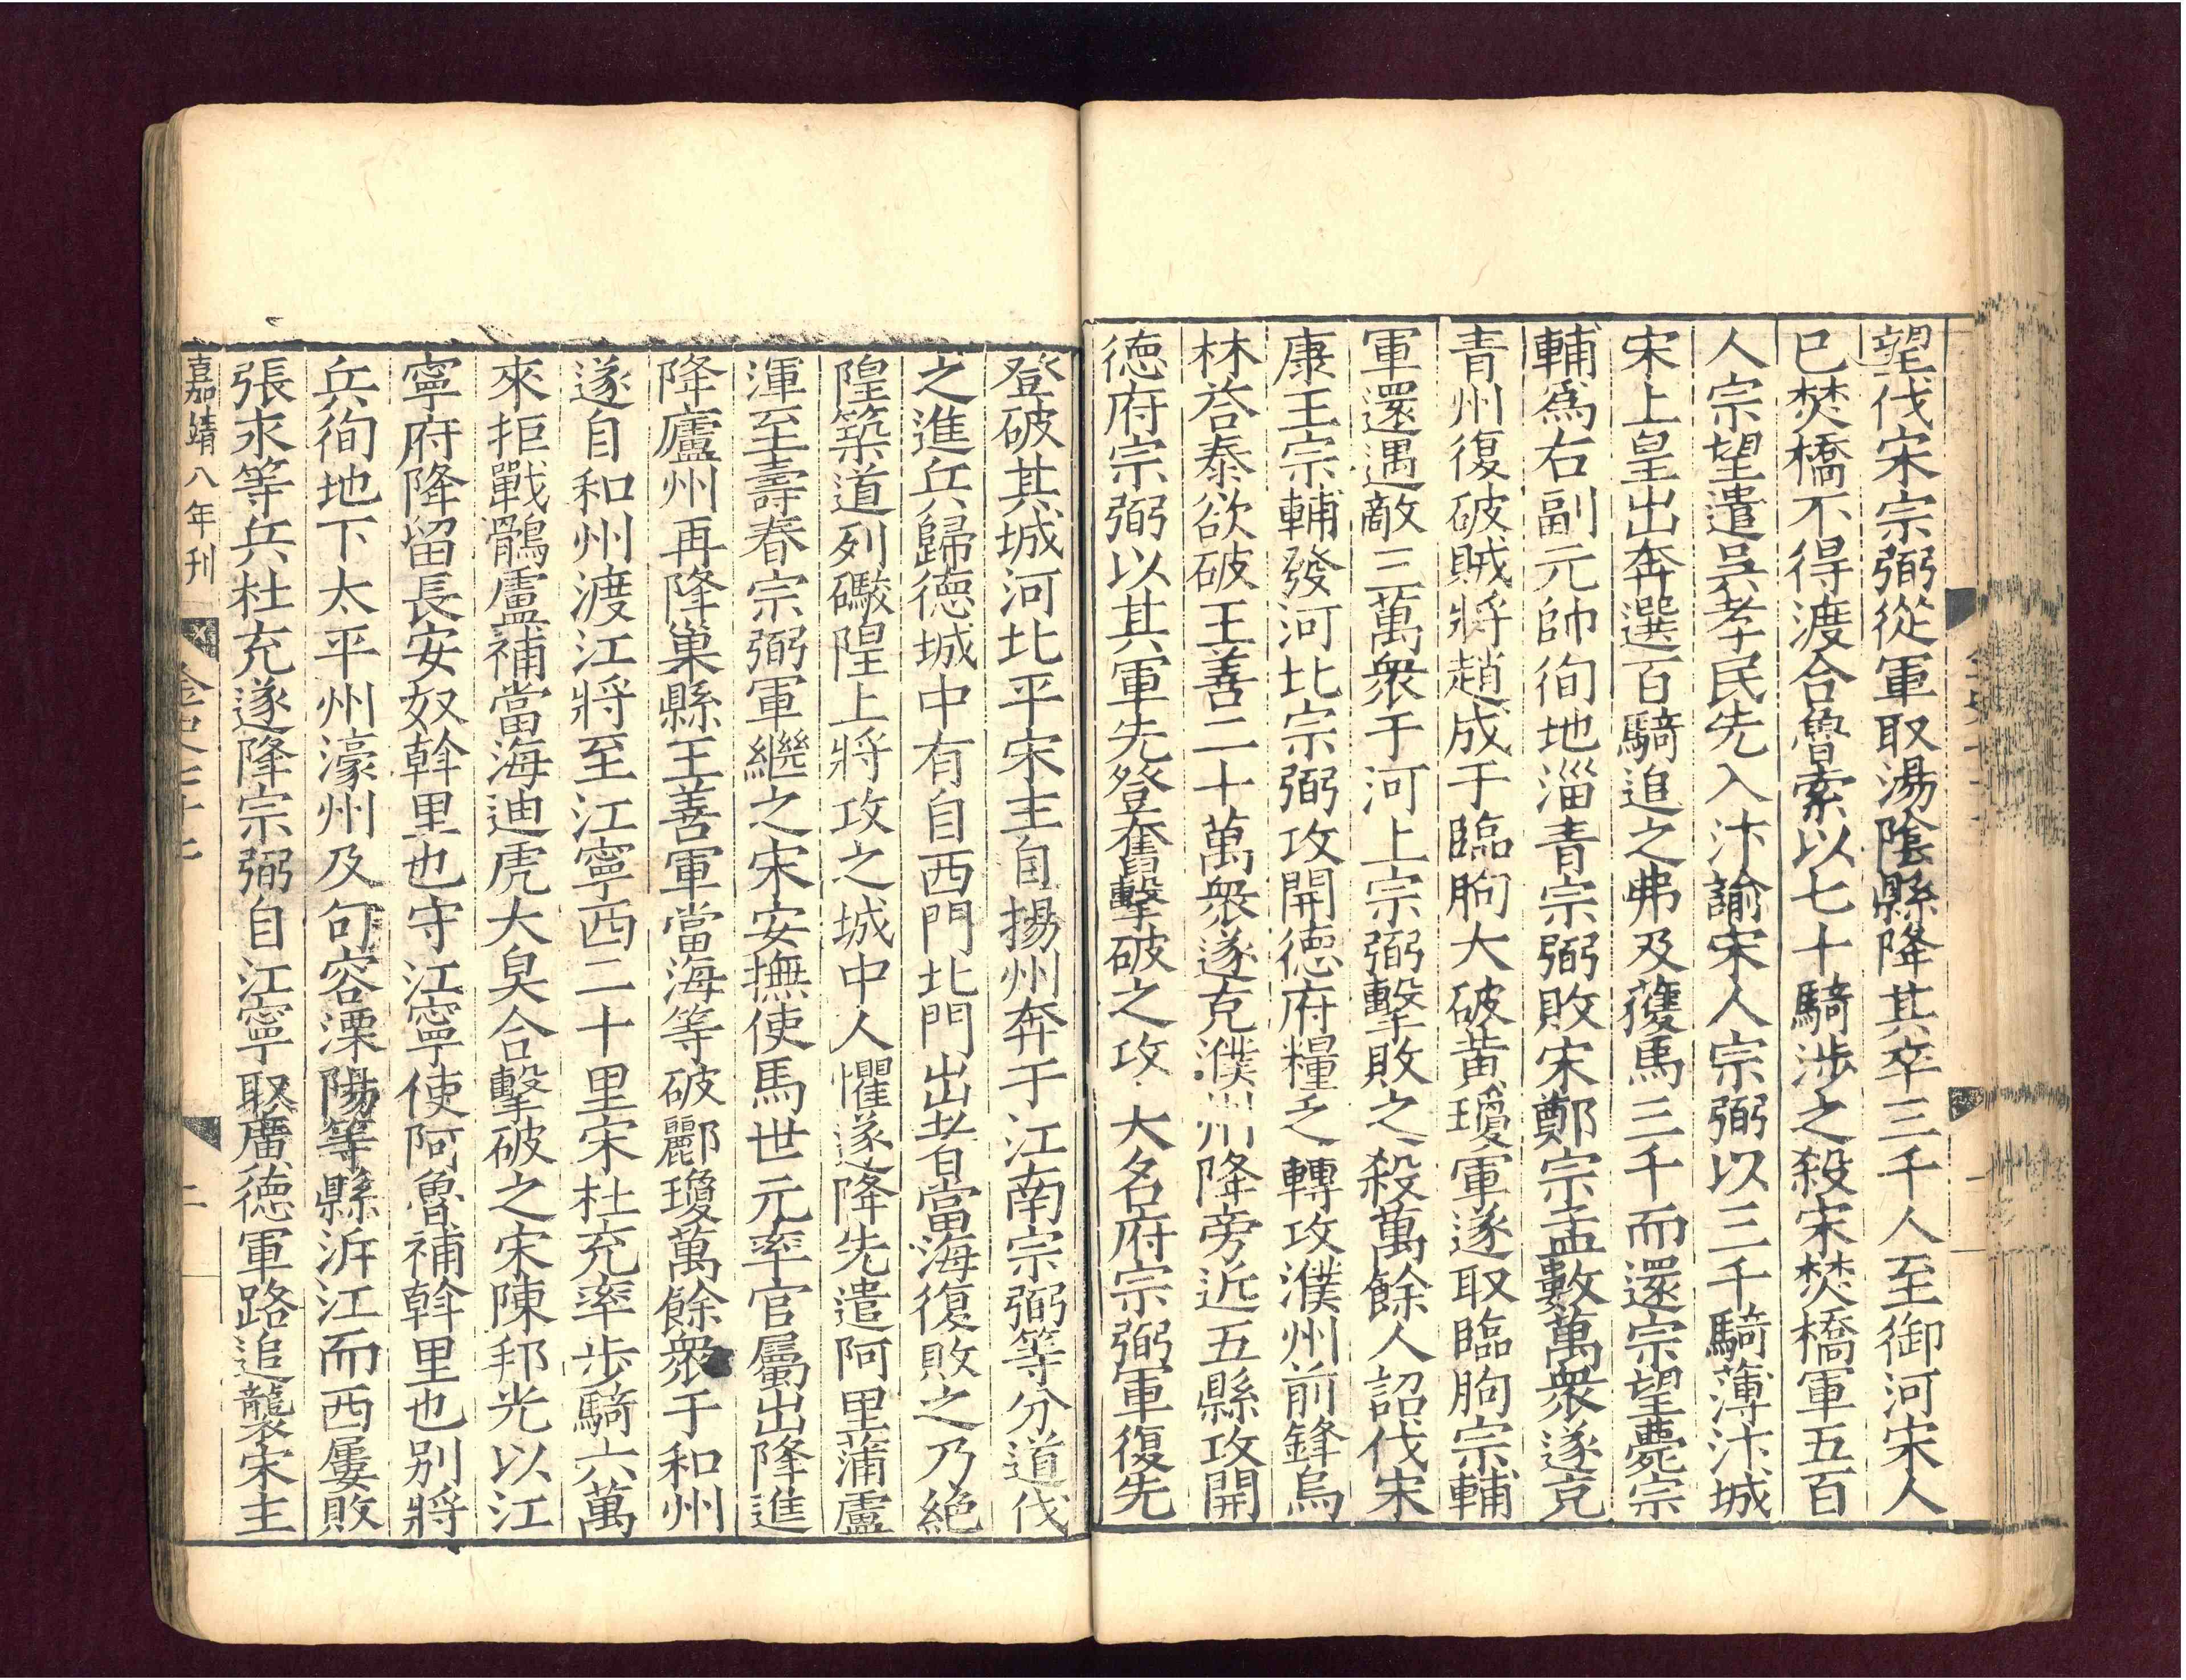 望伐宋宗弼從軍取湯陰縣降其卒三千人至御河宋人
已焚橋不得渡合魯索以七十騎涉之殺宋焚橋軍五百
人宗望遣吳孝民先入汴諭宋人宗弼以三千騎薄汴城
宋上皇出奔選百騎追之弗及獲馬三千而還宗望薨宗
輔爲右副元帥徇地淄青宗弼敗宋鄭宗孟數萬衆遂克
青州復破賊將趙成于臨朐大破黃瓊軍遂取臨朐宗輔
軍還遇敵三萬衆于河上宗弼擊敗之殺萬餘人詔伐宋
康王宗輔發河北宗弼攻開德府糧乏轉攻濮州前鋒烏
林荅泰欲破王善二十萬衆遂克濮州降旁近五縣攻開
德府宗弼以其軍先登奮擊破之攻大名府宗弼軍復先
登破其城河北平宋主自揚州奔于江南宗弼等分道伐
之進兵歸德城中有自西門北門出者當海復敗之乃絕
隍築道列礮隍上將攻之城中人懼遂降先遣阿里蒲盧
渾至壽春宗弼軍繼之宋安撫使馬世元率官屬出降進
降廬州再降巢縣王善軍當海等破酈瓊萬餘衆于和州
遂自和州渡江將至江寧西二十里宋杜充率步騎六萬
來拒戰鶻盧補當海迪虎大㚖合擊破之宋陳邦光以江
寧府降留長安奴斡里也守江寧使阿魯補斡里也別將
兵徇地下太平州濠州及句容溧陽等縣泝江而西屢敗
張永等兵杜充遂降宗弼自江寧取廣德軍路追襲宋主
嘉靖八年刊
金史七十七
二